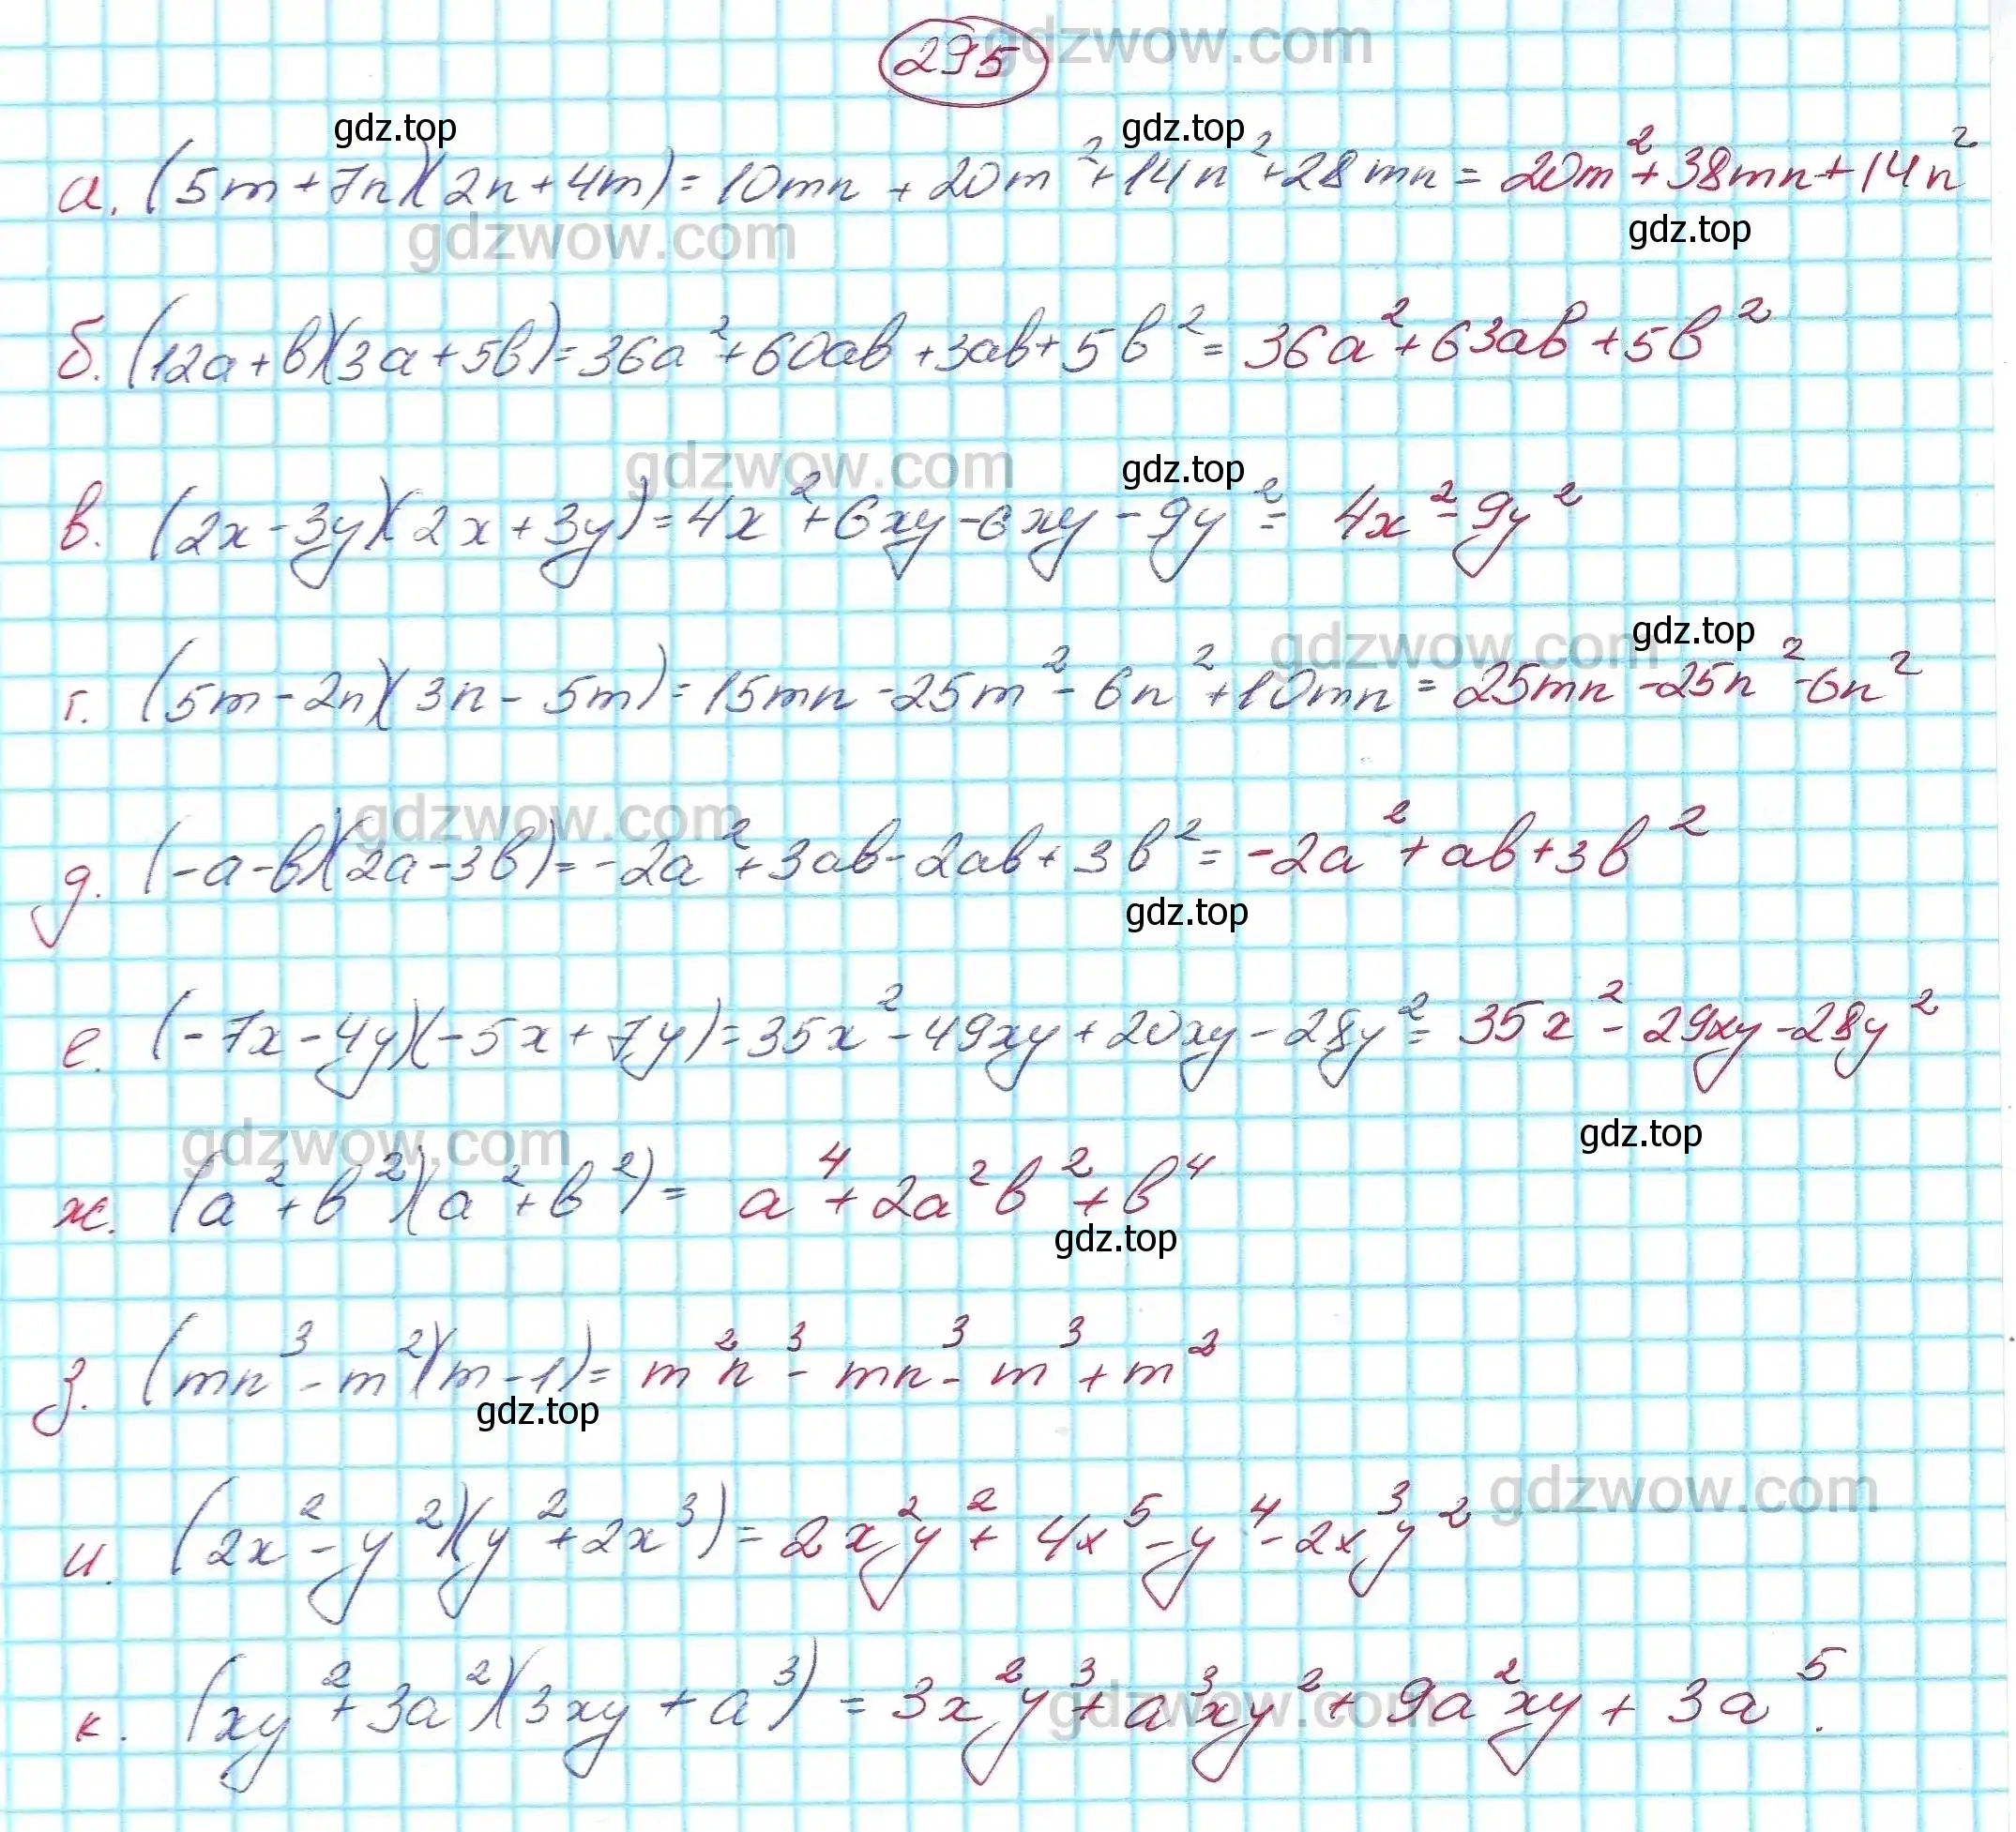 295
gdzwow.com
gdz.top gdz.top
а. (5m+7n)(2n+4m)=10mn+20m²+14n²+28mn=20m²+38mn+14n²
gdzwow.com gdz.top
б. (12a+b)(3a+5b)=36a²+60ab+3ab+5b²=36a²+63ab+5b²
gdzwow.com gdz.top
в. (2x-3y)(2x+3y)=4x²+6xy-6xy-9y²=4x²-9y²
gdzwow.com gdz.top
г. (5m-2n)(3n-5m)=15mn-25m²-6n²+10mn=25mn-25n²-6n²
gdzwow.com
д. (-a-b)(2a-3b)=-2a²+3ab-2ab+3b²=-2a²+ab+3b²
gdz.top
е. (-7x-4y)(-5x+7y)=35x²-49xy+20xy-28y²=35x²-29xy-28y²
gdzwow.com gdz.top
ж. (a²+b²)(a²+b²)=a⁴+2a²b²+b⁴
gdz.top
з. (mn³-m²)(m-1)=m²n³-mn³-m³+m²
gdz.top
gdzwow.com
и. (2x²-y²)(y²+2x³)=2x²y²+4x⁵-y⁴-2x³y²
к. (xy²+3a²)(3xy+a³)=3x²y³+a³xy²+9a²xy+3a⁵.
gdzwow.com